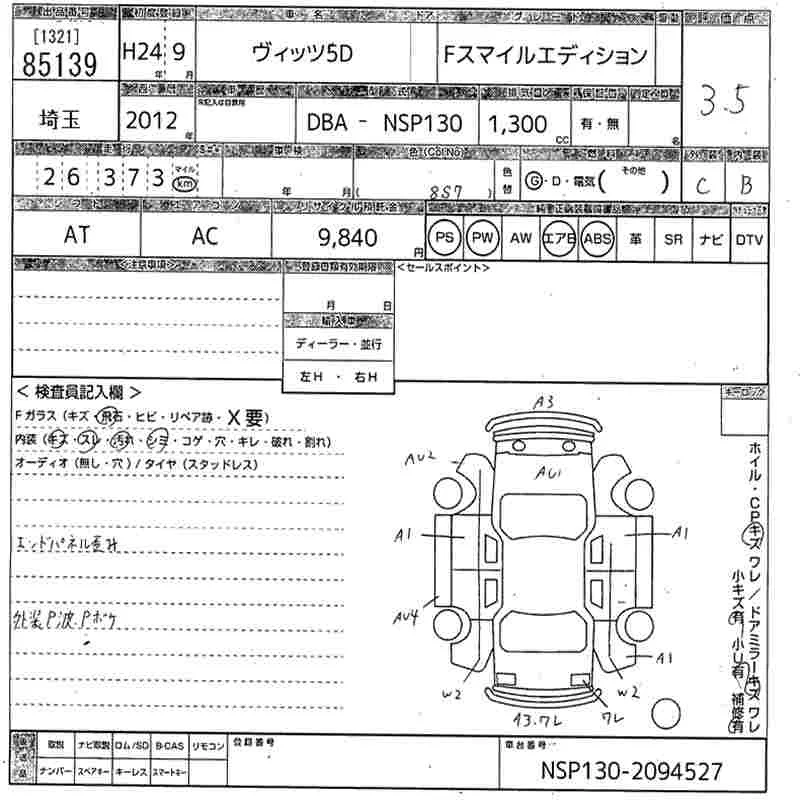 [1321]
85139
H24 9
年 月
ヴィッツ5D
Fスマイルエディション
3.5
埼玉
2012 年
未記入は自家用
DBA - NSP130
1,300 CC
有・無
名
26 373 マイル km
年 月
( 8S7 )
色替
G・D・電気( その他 )
C B
AT AC 9,840 円
PS PW AW エアB ABS 革 SR ナビ DTV
<注意事項>
登録書類有効期限
月 日
<セールスポイント>
輸入車
ディーラー・並行
左H・右H
< 検査員記入欄 >
キーロック
Fガラス (キズ・飛石・ヒビ・リペア跡・X要)
内装 (キズ・スレ・汚れ・シミ・コゲ・穴・キレ・破れ・割れ)
オーディオ (無し・穴) / タイヤ (スタッドレス)
エンドパネル歪み
外装P波.Pボケ
A3
AU2
AU1
A1
A1
AU4
A1
W2
W2
A3.ワレ
ワレ
ホイル・CPキズ ワレ / ドアミラーキズ ワレ
小キズ有 小U有 補修有
取説 ナビ取説 ロム/SD B-CAS リモコン
ナンバー スペアキー キーレス スマートキー
登録番号
車台番号
NSP130-2094527